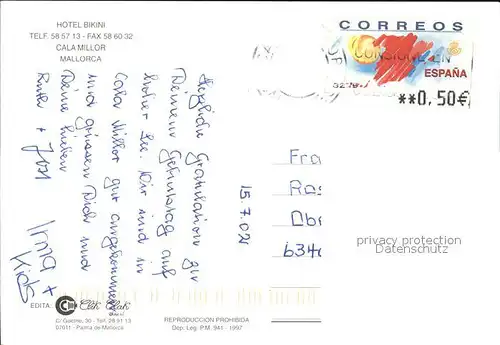 HOTEL BIKINI
TELF. 58 57 13 - FAX 58 60 32
CALA MILLOR
MALLORCA
CORREOS
CONSIGNE EN
ESPAÑA
**0,50€
15.7.02
Herzliche Gratulation zu
Deinem Geburtstag auf
hoher See. Wir sind in
Cala Millor gut angekommen
und grüssen Dich und
Deine Lieben
Ruth + Jost
Irma +
Fra
Ros
Obe
634
privacy protection
Datenschutz
EDITA:
Clik Clak
C/ Gremio, 30 - Tel. 28 91 13
07011 - Palma de Mallorca
REPRODUCCION PROHIBIDA
Dep. Leg. P.M. 941 - 1997